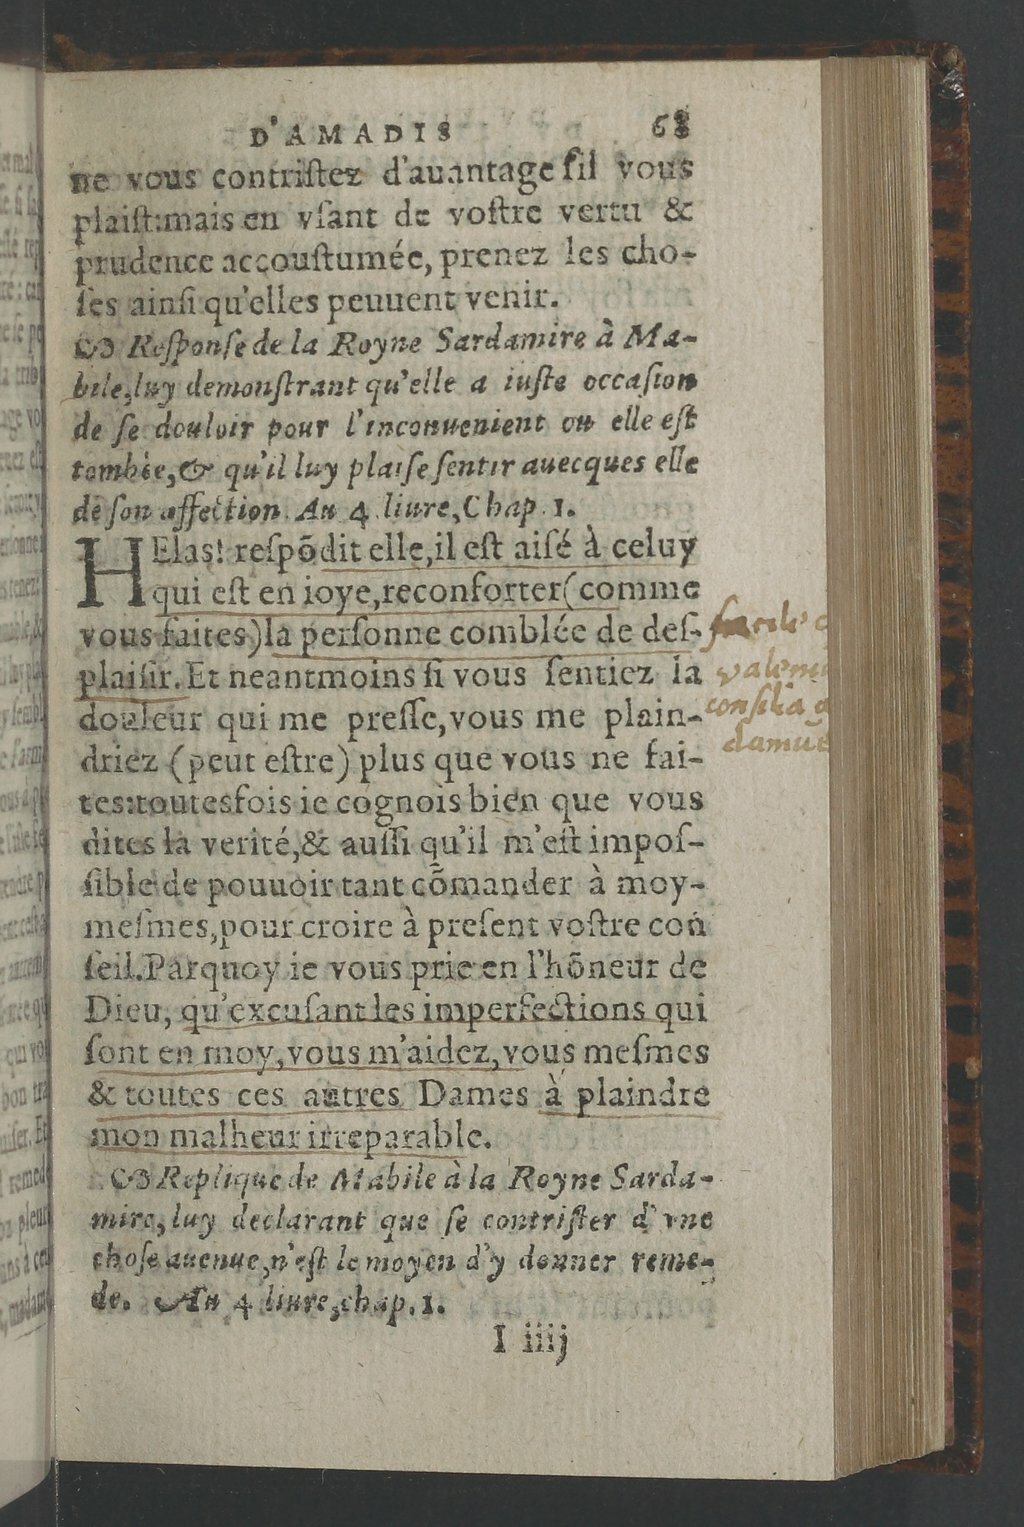 D'AMADIS 68
ne vous contriſtez d'auantage ſil vous
plaiſt:mais en vſant de voſtre vertu &
prudence accouſtumée, prenez les cho-
ſes ainſi qu'elles peuuent venir.
Reſponſe de la Royne Sardamire à Ma-
bile,luy demonſtrant qu'elle a iuſte occaſion
de ſe douloir pour l'inconuenient ou elle eſt
tombée,& qu'il luy plaiſe ſentir auecques elle
de ſon affection. Au 4 liure,Chap. 1.
HElas! reſpõdit elle,il eſt aiſé à celuy
qui eſt en ioye,reconforter(comme
vous faites)la perſonne comblée de deſ-
plaiſir. Et neantmoins ſi vous ſentiez la
douleur qui me preſſe,vous me plain-
driez (peut eſtre) plus que vous ne fai-
tes:toutesfois ie cognois bien que vous
dites la verité,& auſſi qu'il m'eſt impoſ-
ſible de pouuoir tant cõmander à moy-
meſmes,pour croire à preſent voſtre con
ſeil.Parquoy ie vous prie en l'hõneur de
Dieu, qu'excuſant les imperfections qui
ſont en moy,vous m'aidez,vous meſmes
& toutes ces autres Dames à plaindre
mon malheur irreparable.
Replique de Mabile à la Royne Sarda-
mire,luy declarant que ſe contriſter d'vne
choſe auenue,n'eſt le moyen d'y donner reme-
de. Au 4 liure,chap.1.
I iiij
facile
consilia
damus